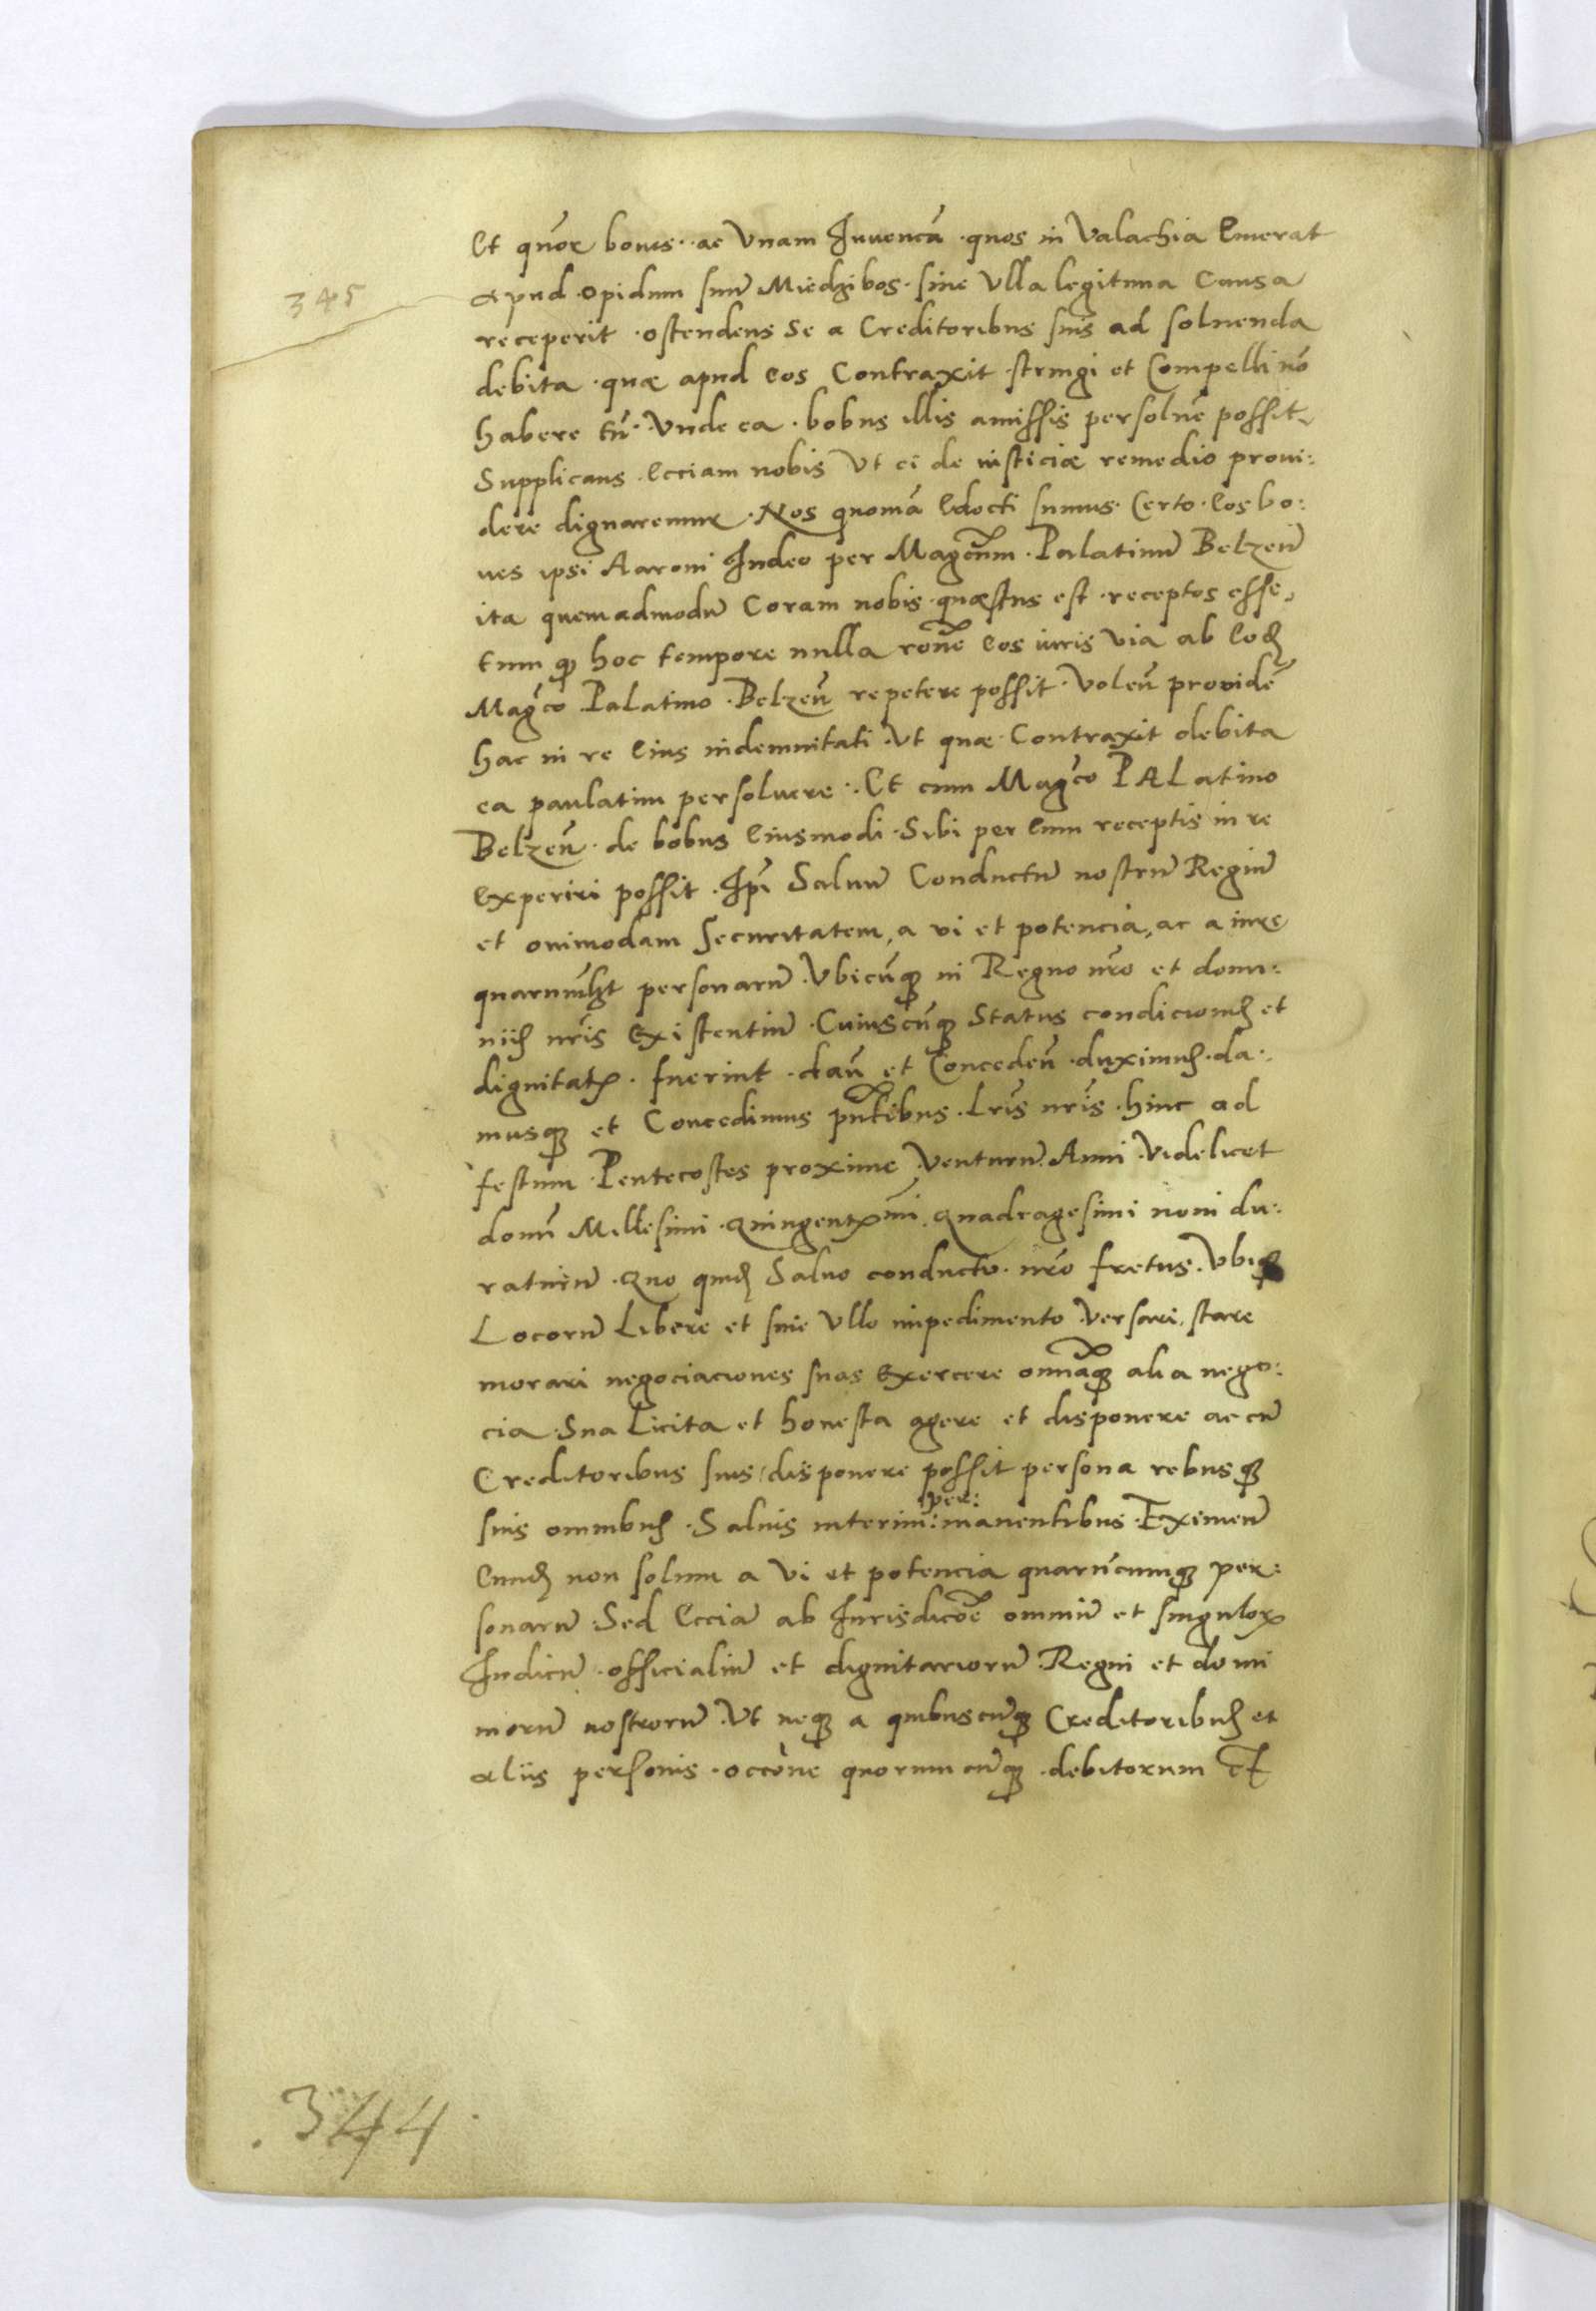 345
Et quor̃ boues · ac Vnam Iuuencã · quos in Valachia Emerat
apud · opidum suũ Miedzibos · sine Vlla legitima Causa
receperit · ostendens Se a Creditoribus suis ad soluenda
debita · quæ apud Eos Contraxit stringi et Compelli nõ
habere tñ · Vnde ea · bobus illis amissis persoluẽ possit,
Supplicans Ecciam nobis Vt ei de iusticiæ remedio proui:
dere dignaremur · Nos quoniã Edocti sumus · Certo · Eos bo:
ues ipsi Aaroni Iudeo per Magcum̃ · Palatinũ Belzeñ
ita quemadmodũ Coram nobis quæstus est · receptos esse,
tum qȝ hoc tempore nulla rõne Eos iuris Via ab Eodȝ
Magc̃o Palatino · Belzeñ repetere possit · Voleñ prouidẽ
hac in re Eius indemnitati · Vt quæ Contraxit debita
ea paulatim persoluere · Et cum Magc̃o PALatino
Belzeñ · de bobus Eiusmodi · Sibi per Eum receptis in re
experiri possit · Ipĩ Saluũ Conductũ nostrũ Regiũ
et omimodam Securitatem, a vi et potencia, ac a iure
quarumlȝt personarũ · Vbicũqȝ in Regno nr̃o et domi:
niiȝ nr̃is Existentiũ · Cuiuscũqȝ Status condicioniȝ et
dignitatꝭ · fuerint · dañ et Concedeñ · duximuȝ · da:
musqȝ et Concedimus pñtibus · Lr̃is nr̃is · hinc ad
festum · Pentecostes proxime Venturũ Anni · Videlicet
domñ Millesimi · Quingentꝭmi Quadragesimi noni du:
raturũ · Quo quidȝ Saluo conducto · nr̃o fretus · Vbiqȝ
Locorũ Libere et sine Vllo impedimento Versari, stare
morari negociaciones suas Exercere omniaqȝ alia nego:
cia Sua Licita et honesta agere et disponere ac cũ
Creditoribus suis disponere possit persona rebusqȝ
suis omnibuȝ · Saluis interim: per: manentibus · Eximeñ
Eundȝ non solum a Vi et potencia quarũcumqȝ per:
sonarũ · Sed Ecciã ab Iurisdicõe omniũ et singulorꝭ
Iudicũ · officialiũ et dignitariorũ Regni et domi
niorũ nostrorũ · Vt neqȝ a quibuscũqȝ Creditoribuȝ et
aliis personis · occõne quorumcũqȝ · debitorum Et
· 344 ·